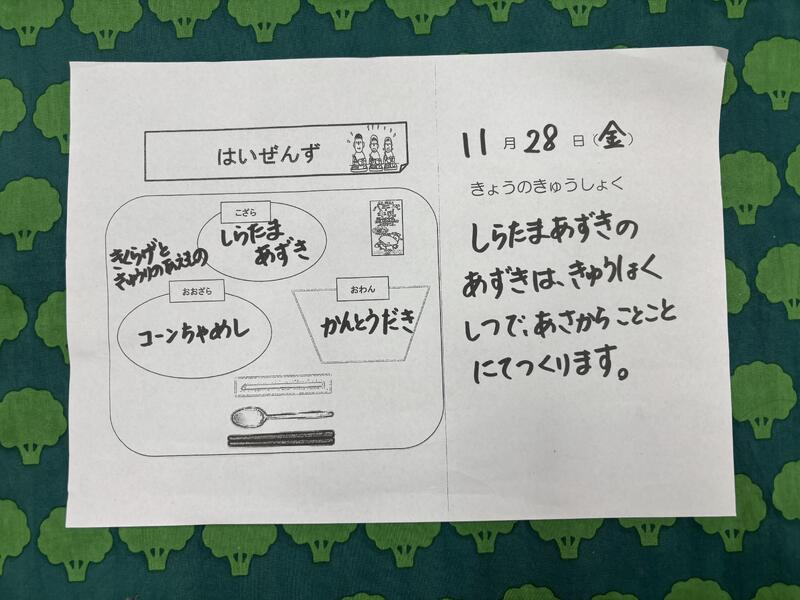 はいぜんず
こざら
しらたま
あずき
きくらげと
きゅうりのあえもの
おおざら
コーンちゃめし
おわん
かんとうだき
11月28日(金)
きょうのきゅうしょく
しらたまあずきの
あずきは、きゅうしょく
しつで、あさからことこと
にてつくります。